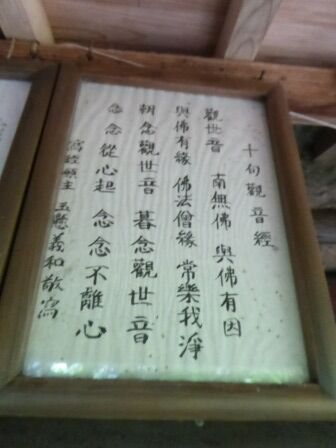 十句觀音經
觀世音 南無佛 與佛有因
與佛有緣 佛法僧緣 常樂我淨
朝念觀世音 暮念觀世音
念念從心起 念念不離心
寫經願主 玉懸義和敬寫